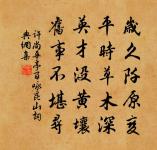 歲久阡原変
平時草木深
英才没黄壤
舊事不堪尋
許尚華亭百詠昆山詞
典網集